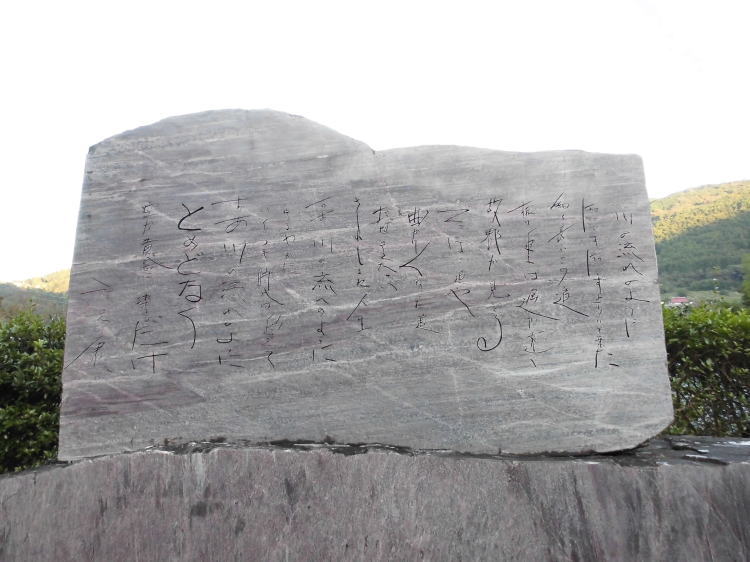 川の流れのように
知らず知らず歩いて来た
細く長いこの道
振り返れば遥か遠く
故郷が見える
でこぼこ道や
曲がりくねった道
地図さえない
それもまた人生
ああ川の流れのように
ゆるやかに
いくつも時代は過ぎて
ああ川の流れのように
とめどなく
空が黄昏に染まるだけ